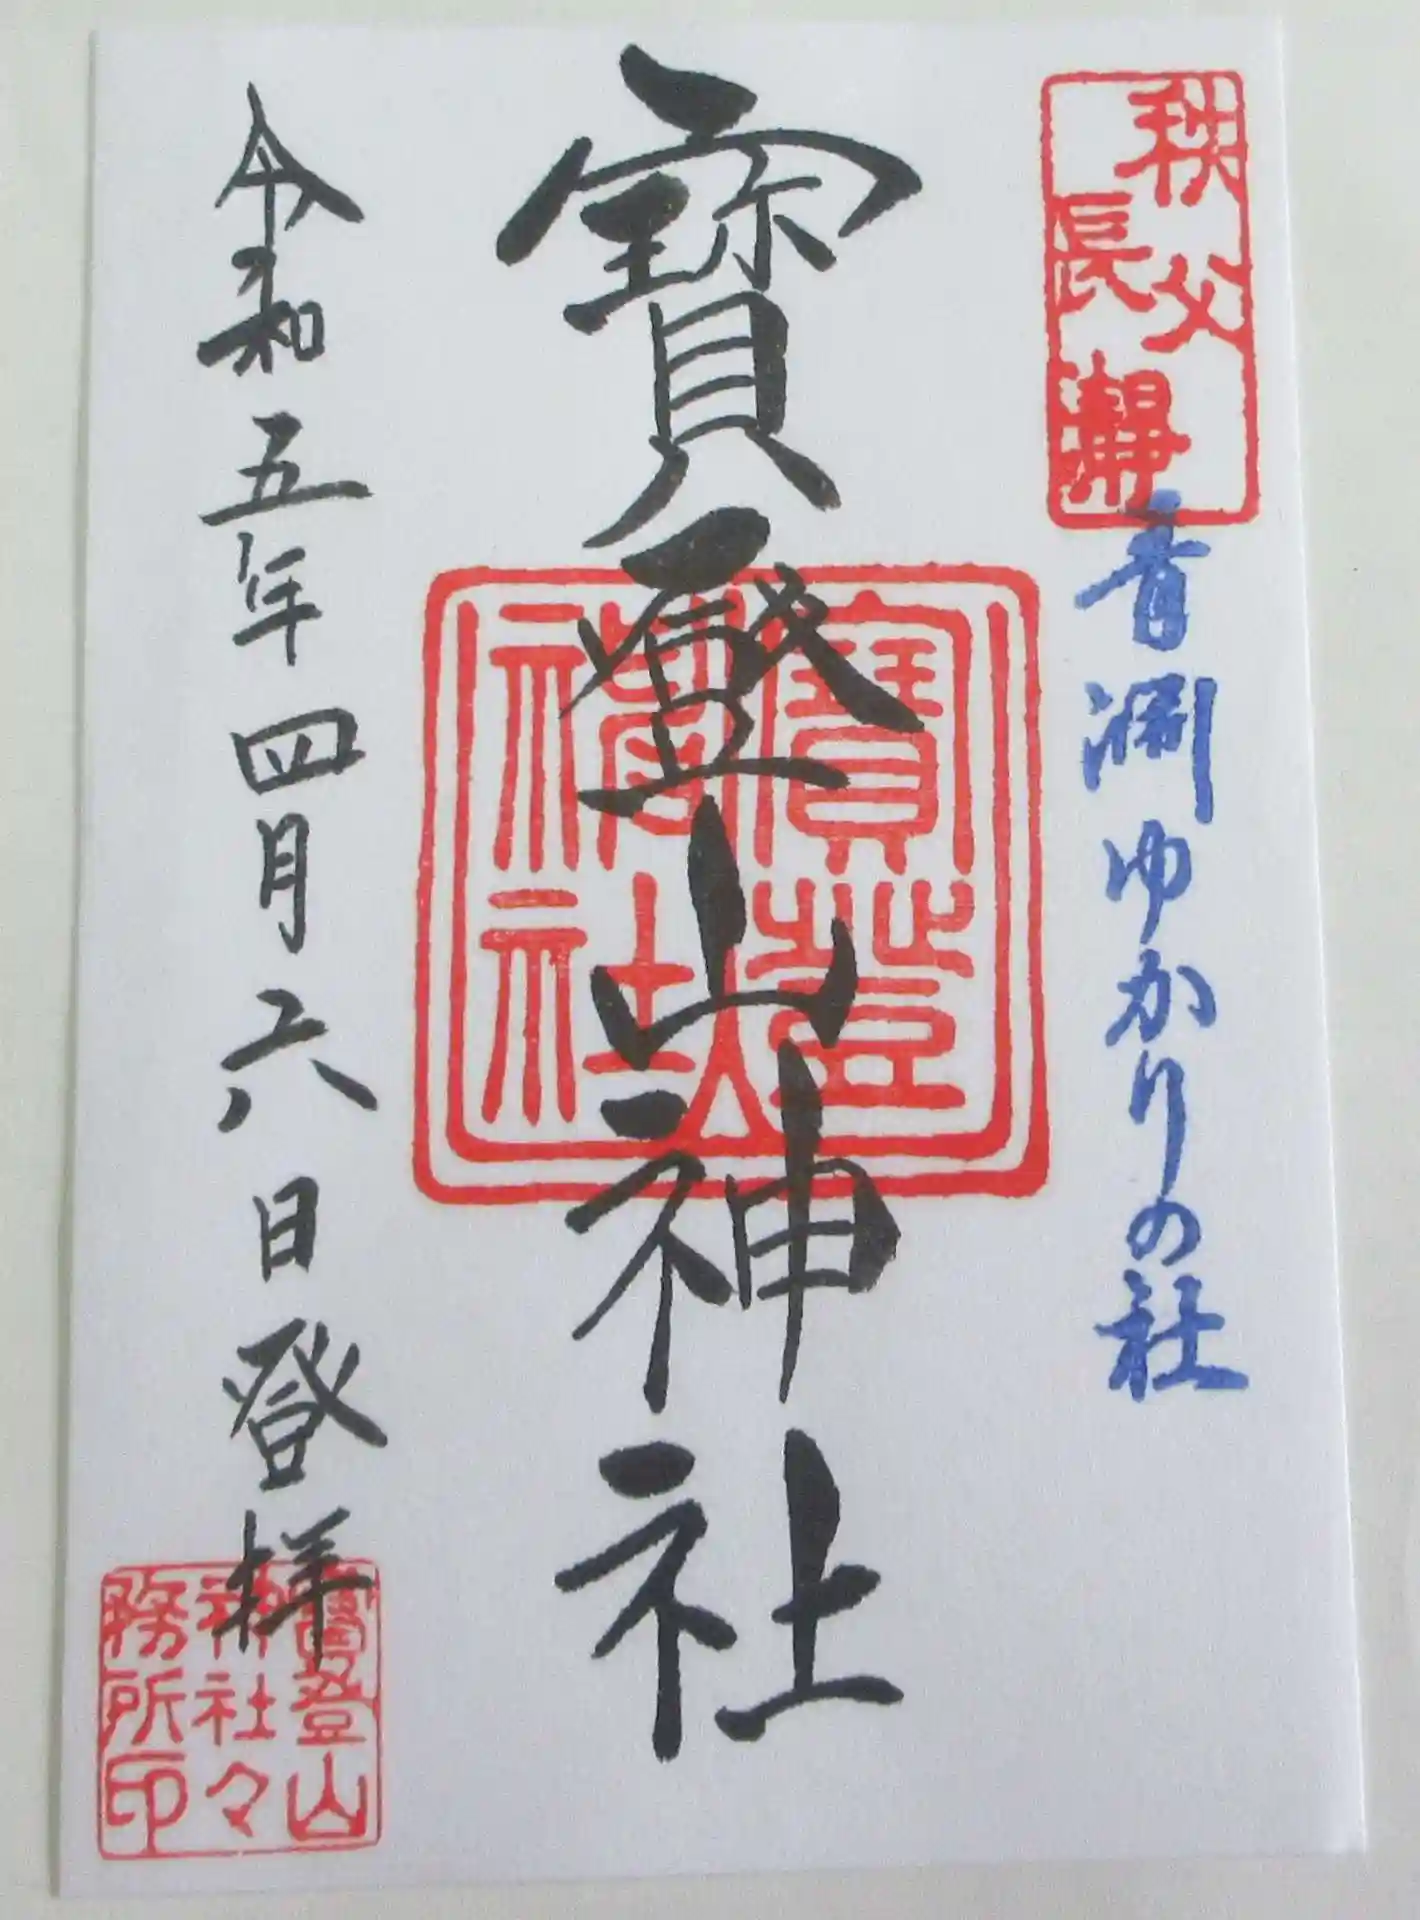 秩父
長瀞
青淵ゆかりの社
寳登山神社
寶登山
神社
令和五年四月六日登拝
寳登山
神社々
務所印